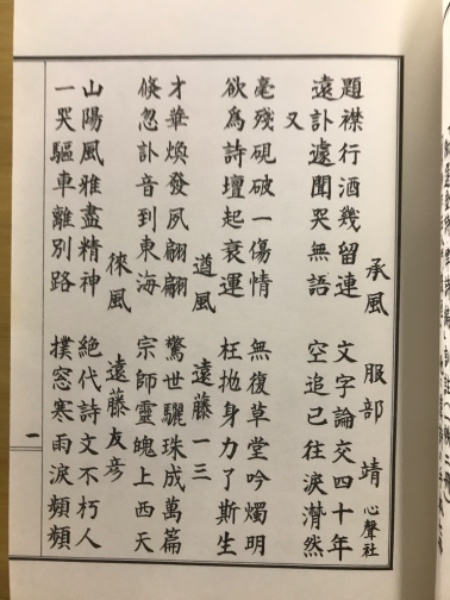 承風　服部　靖　心聲社
題襟行酒幾留連　文字論交四十年
遠訃遽聞哭無語　空追已往淚潸然
又
毫殘硯破一傷情　無復草堂吟燭明
欲為詩壇起衰運　枉拋身力了斯生
遒風　遠藤一三
才華煥發夙翩翩　驚世驪珠成萬篇
倐忽訃音到東海　宗師靈魄上西天
徠風　遠藤友彦
山陽風雅盡精神　絕代詩文不朽人
一哭驅車離別路　撲窓寒雨淚頻頻
一